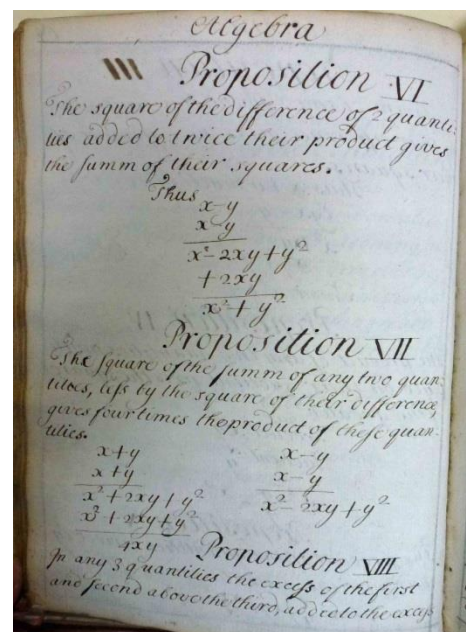 Algebra
III Proposition VI
The square of the difference of 2 quanti-
ties added to twice their product gives
the summ of their squares.
Thus
x-y
x-y
x² - 2xy + y²
+ 2xy
x² + y²
Proposition VII
The square of the summ of any two quan-
tities, less by the square of their difference,
gives four times the product of these quan-
tities.
x+y x-y
x+y x-y
x² + 2xy + y² x² - 2xy + y²
4xy Proposition VIII
In any 3 quantities the excess of the first
and second above the third, added to the excess